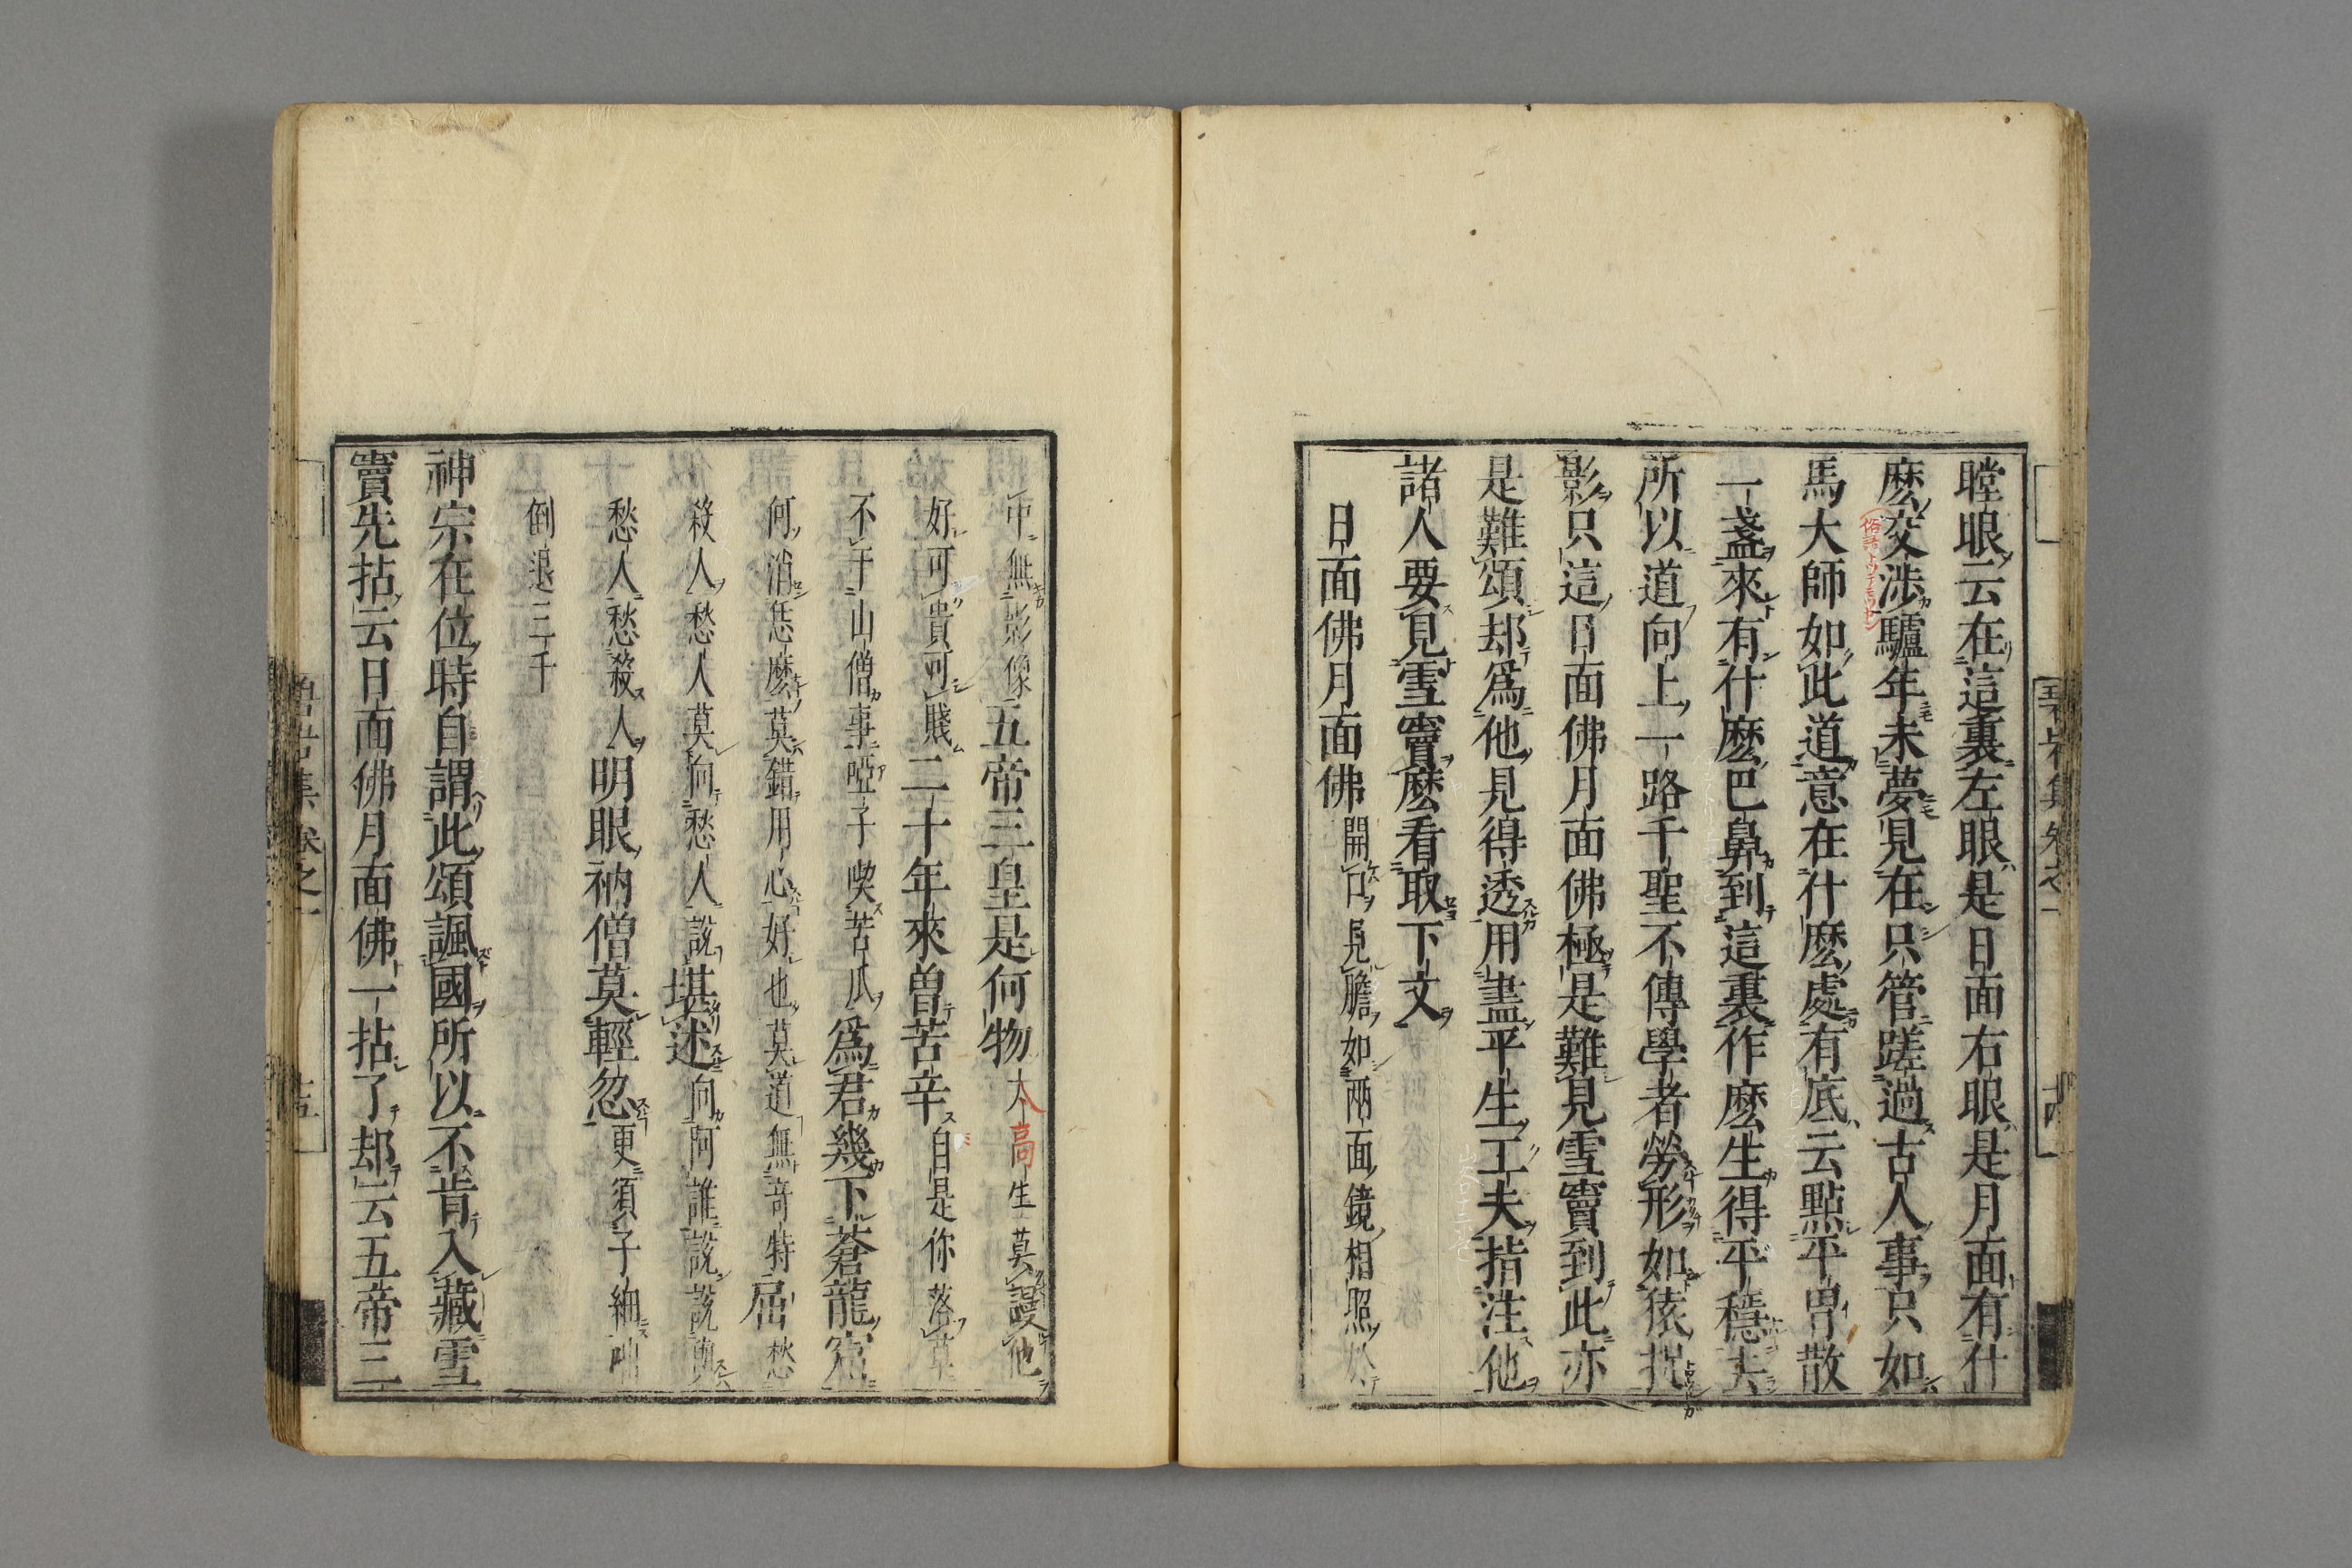 瞠眼云在這裏左眼是日面右眼是月面有什
麽交渉驢年未夢見在只管蹉過古人事只如
馬大師如此道意在什麽處有底云點平胃散
一盞來有什麽巴鼻到這裏作麽生得平穩去
所以道向上一路千聖不傳學者勞形如猿捉
影只這日面佛月面佛極是難見雪竇到此亦
是難頌却爲他見得透用盡平生工夫指注他
諸人要見雪竇麽看取下文
日面佛月面佛開口見膽如兩面鏡相照於
中無影像五帝三皇是何物太高生莫謾他
好可貴可賤二十年來曽苦辛自是你落草
不干山僧事啞子喫苦瓜爲君幾下蒼龍窟
何消恁麽莫錯用心好也莫道無奇特屈愁
殺人愁人莫向愁人說堪述向阿誰說說與
愁人愁殺人明眼衲僧莫輕忽更須子細咄
倒退三千
神宗在位時自謂此頌諷國所以不肯入藏雪
竇先拈云日面佛月面佛一拈了却云五帝三